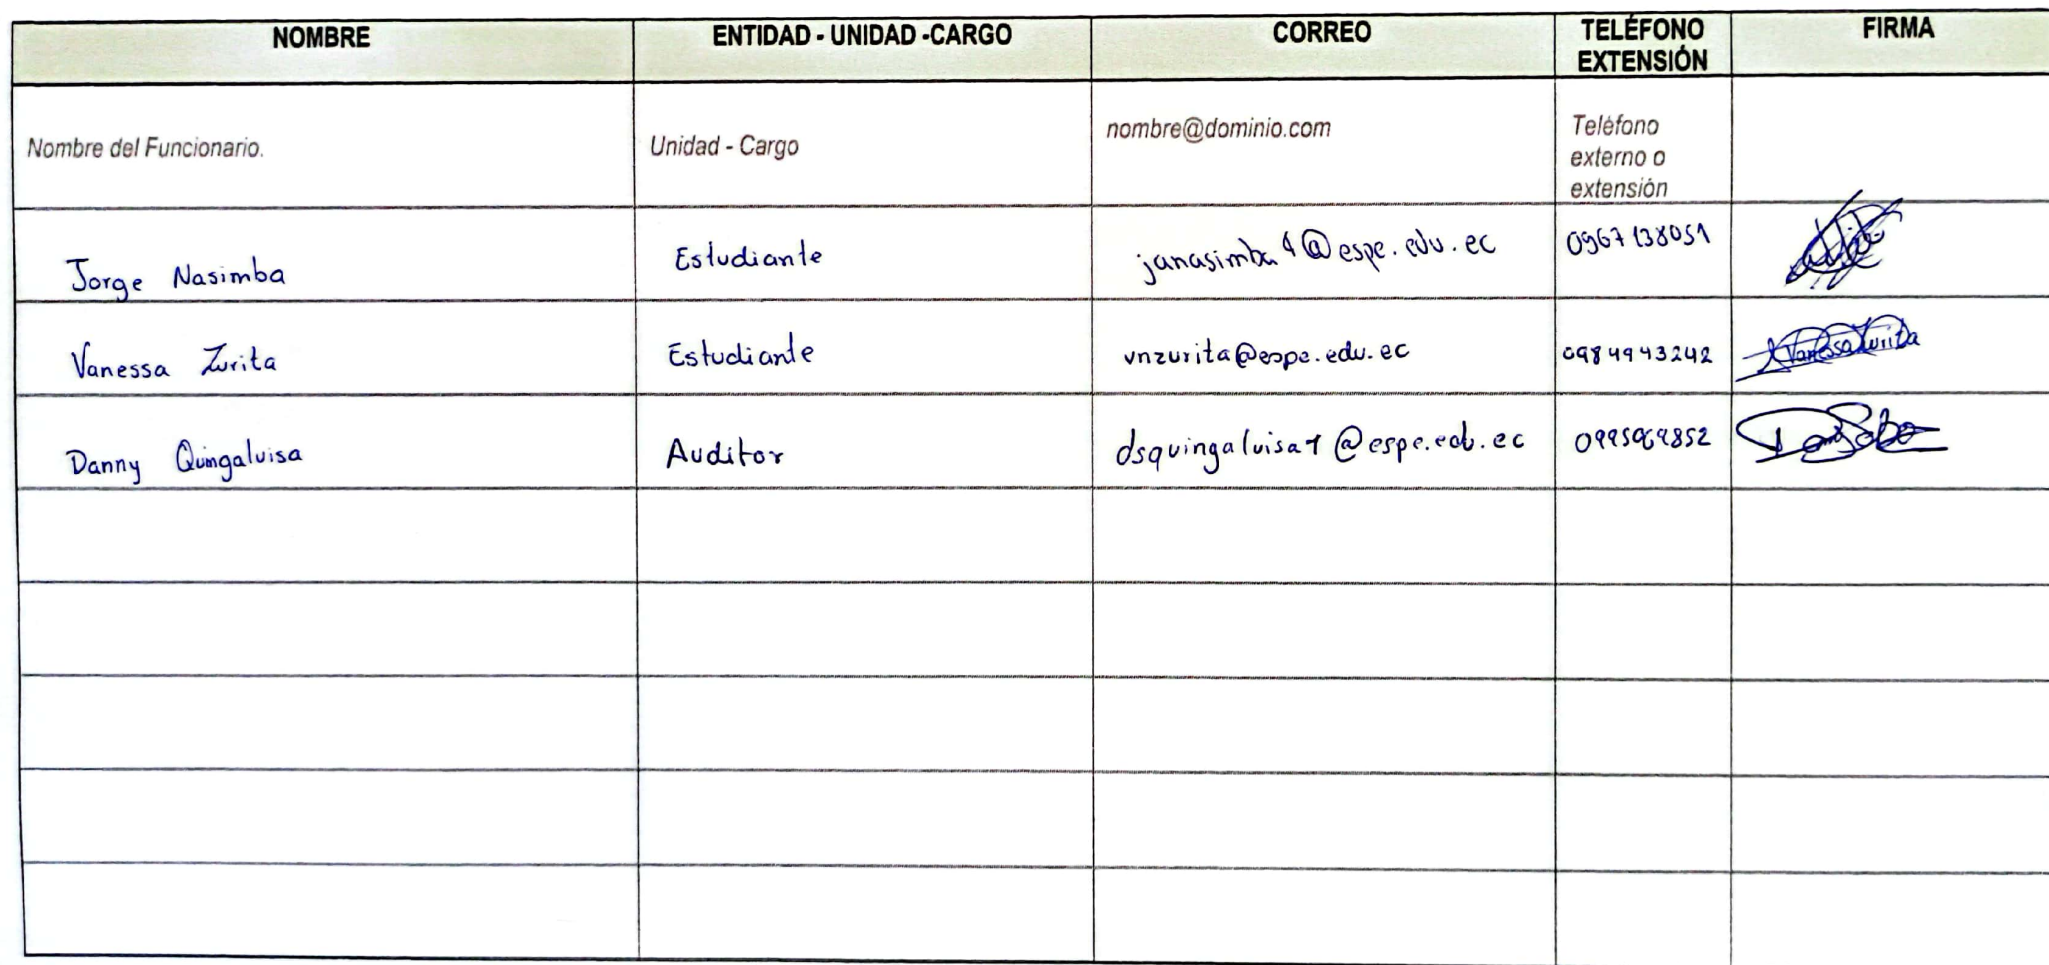 NOMBRE
ENTIDAD - UNIDAD -CARGO
CORREO
TELÉFONO
EXTENSIÓN
FIRMA
Nombre del Funcionario.
Unidad - Cargo
nombre@dominio.com
Teléfono
externo o
extensión
Jorge Nasimba
Estudiante
0967138051
Vanessa Zurita
Estudiante
vnzurita@espe.edu.ec
0984943242
Vanessa Zurita
Danny Quingaluisa
Auditor